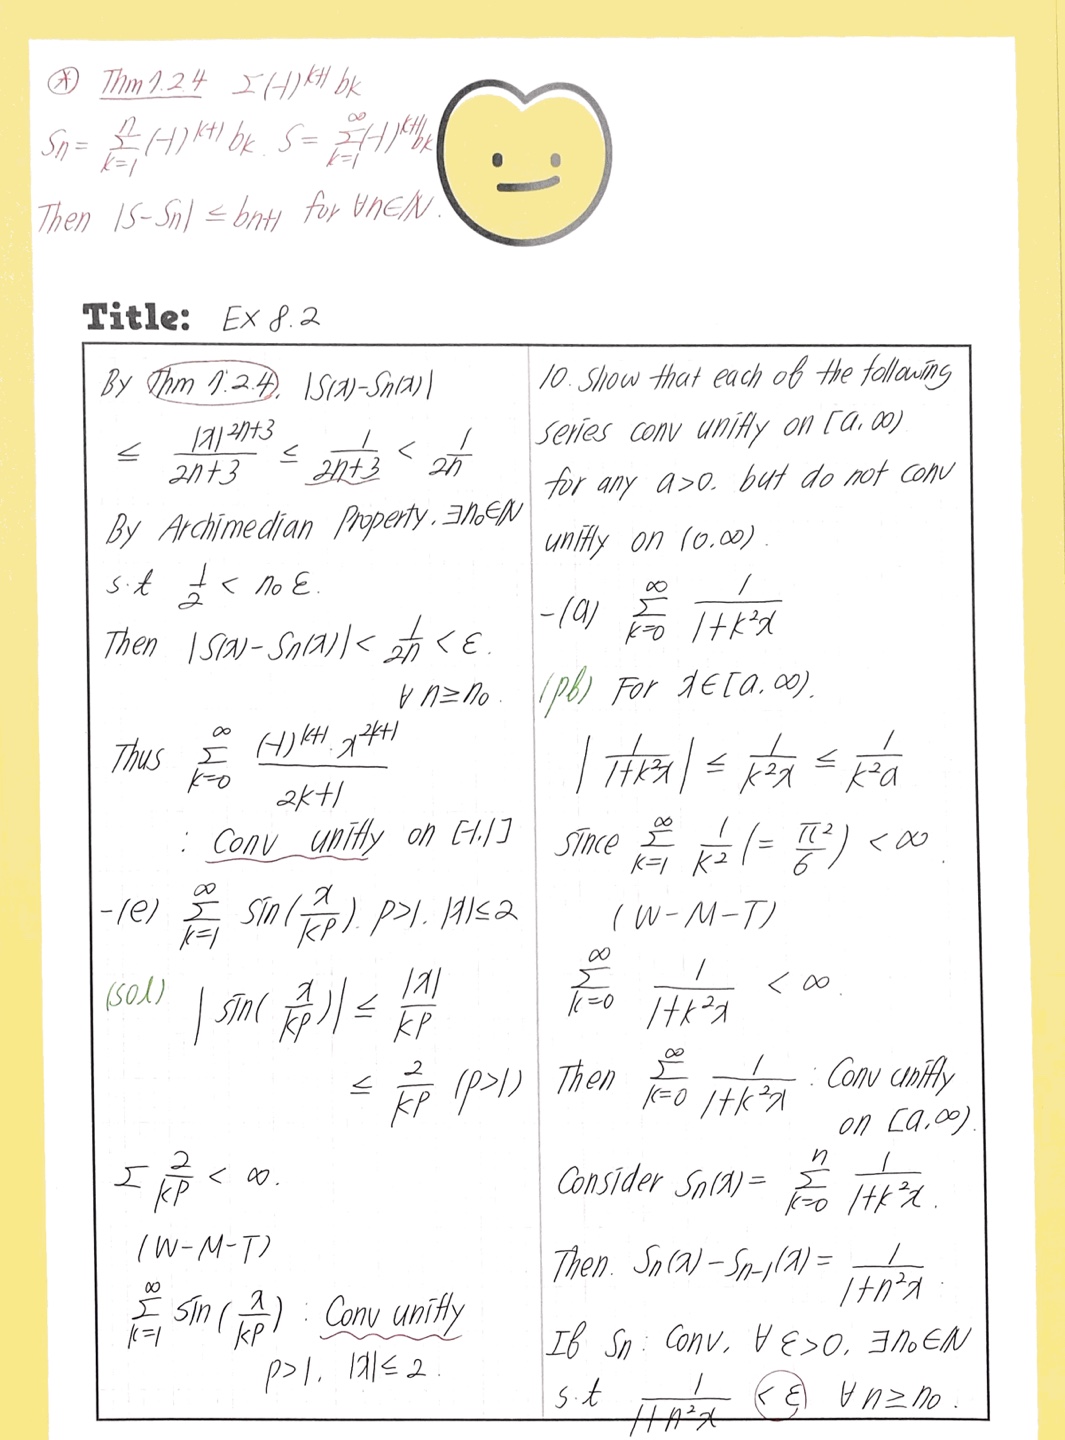 ⊛ Thm 7.2.4 Σ(-1)^{k+1} bk
Sn = Σ_{k=1}^{n} (-1)^{k+1} bk. S = Σ_{k=1}^{∞} (-1)^{k+1} bk
Then |S-Sn| ≤ bn+1 for ∀n∈ℕ.
Title: EX 8.2
By Thm 7.2.4, |S(x)-Sn(x)|
≤ |x|^{2n+3}/(2n+3) ≤ 1/(2n+3) < 1/2n
By Archimedian Property. ∃n₀∈ℕ
s.t 1/2 < n₀ ε.
Then |S(x)-Sn(x)| < 1/2n < ε.
∀ n≥n₀.
Thus Σ_{k=0}^{∞} (-1)^{k+1}·x^{2k+1}/(2k+1)
: Conv unifly on [-1,1]
-(e) Σ_{k=1}^{∞} sin(x/k^p). p>1. |x|≤2
(sol) |sin(x/k^p)| ≤ |x|/k^p
≤ 2/k^p (p>1)
Σ 2/k^p < ∞.
(W-M-T)
Σ_{k=1}^{∞} sin(x/k^p) : Conv unifly
p>1, |x|≤2.
10. Show that each of the following
series conv unifly on [a,∞)
for any a>0. but do not conv
unifly on (0.∞).
-(a) Σ_{k=0}^{∞} 1/(1+k²x)
(pf) For x∈[a,∞).
|1/(1+k²x)| ≤ 1/(k²x) ≤ 1/(k²a)
since Σ_{k=1}^{∞} 1/k² (= π²/6) < ∞.
(W-M-T)
Σ_{k=0}^{∞} 1/(1+k²x) < ∞.
Then Σ_{k=0}^{∞} 1/(1+k²x) : Conv unifly
on [a,∞).
Consider Sn(x) = Σ_{k=0}^{n} 1/(1+k²x).
Then. Sn(x)-Sn-1(x) = 1/(1+n²x).
If Sn : Conv, ∀ε>0, ∃n₀∈ℕ
s.t 1/(1+n²x) < ε, ∀n≥n₀.